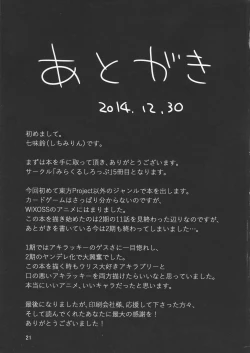 あとがき
2014.12.30
初めまして。
七味鈴(しちみりん)です。
まずは本を手に取って頂き、ありがとうございます。
サークル「みらくるしろっぷ」5冊目となります。
今回初めて東方Project以外のジャンルで本を出します。
カードゲームはさっぱり分からないのですが、
WIXOSSのアニメにはまりました。
この本を描き始めたのは2期の11話を見終わった辺りなのですが、
あとがきを書いている今は2期も終わってしまいました…。
1期ではアキラッキーのゲスさに一目惚れし、
2期のヤンデレ化で大興奮でした。
この本を描く時もウリス大好きアキラブリーと
口の悪いアキラッキーを両方描けたらいいなと思っていました。
本当にいいアニメ、いいキャラだったと思います。
最後になりましたが、印刷会社様、応援して下さった方々、
そして読んでくれたあなたに最大の感謝を！
ありがとうございました！
21